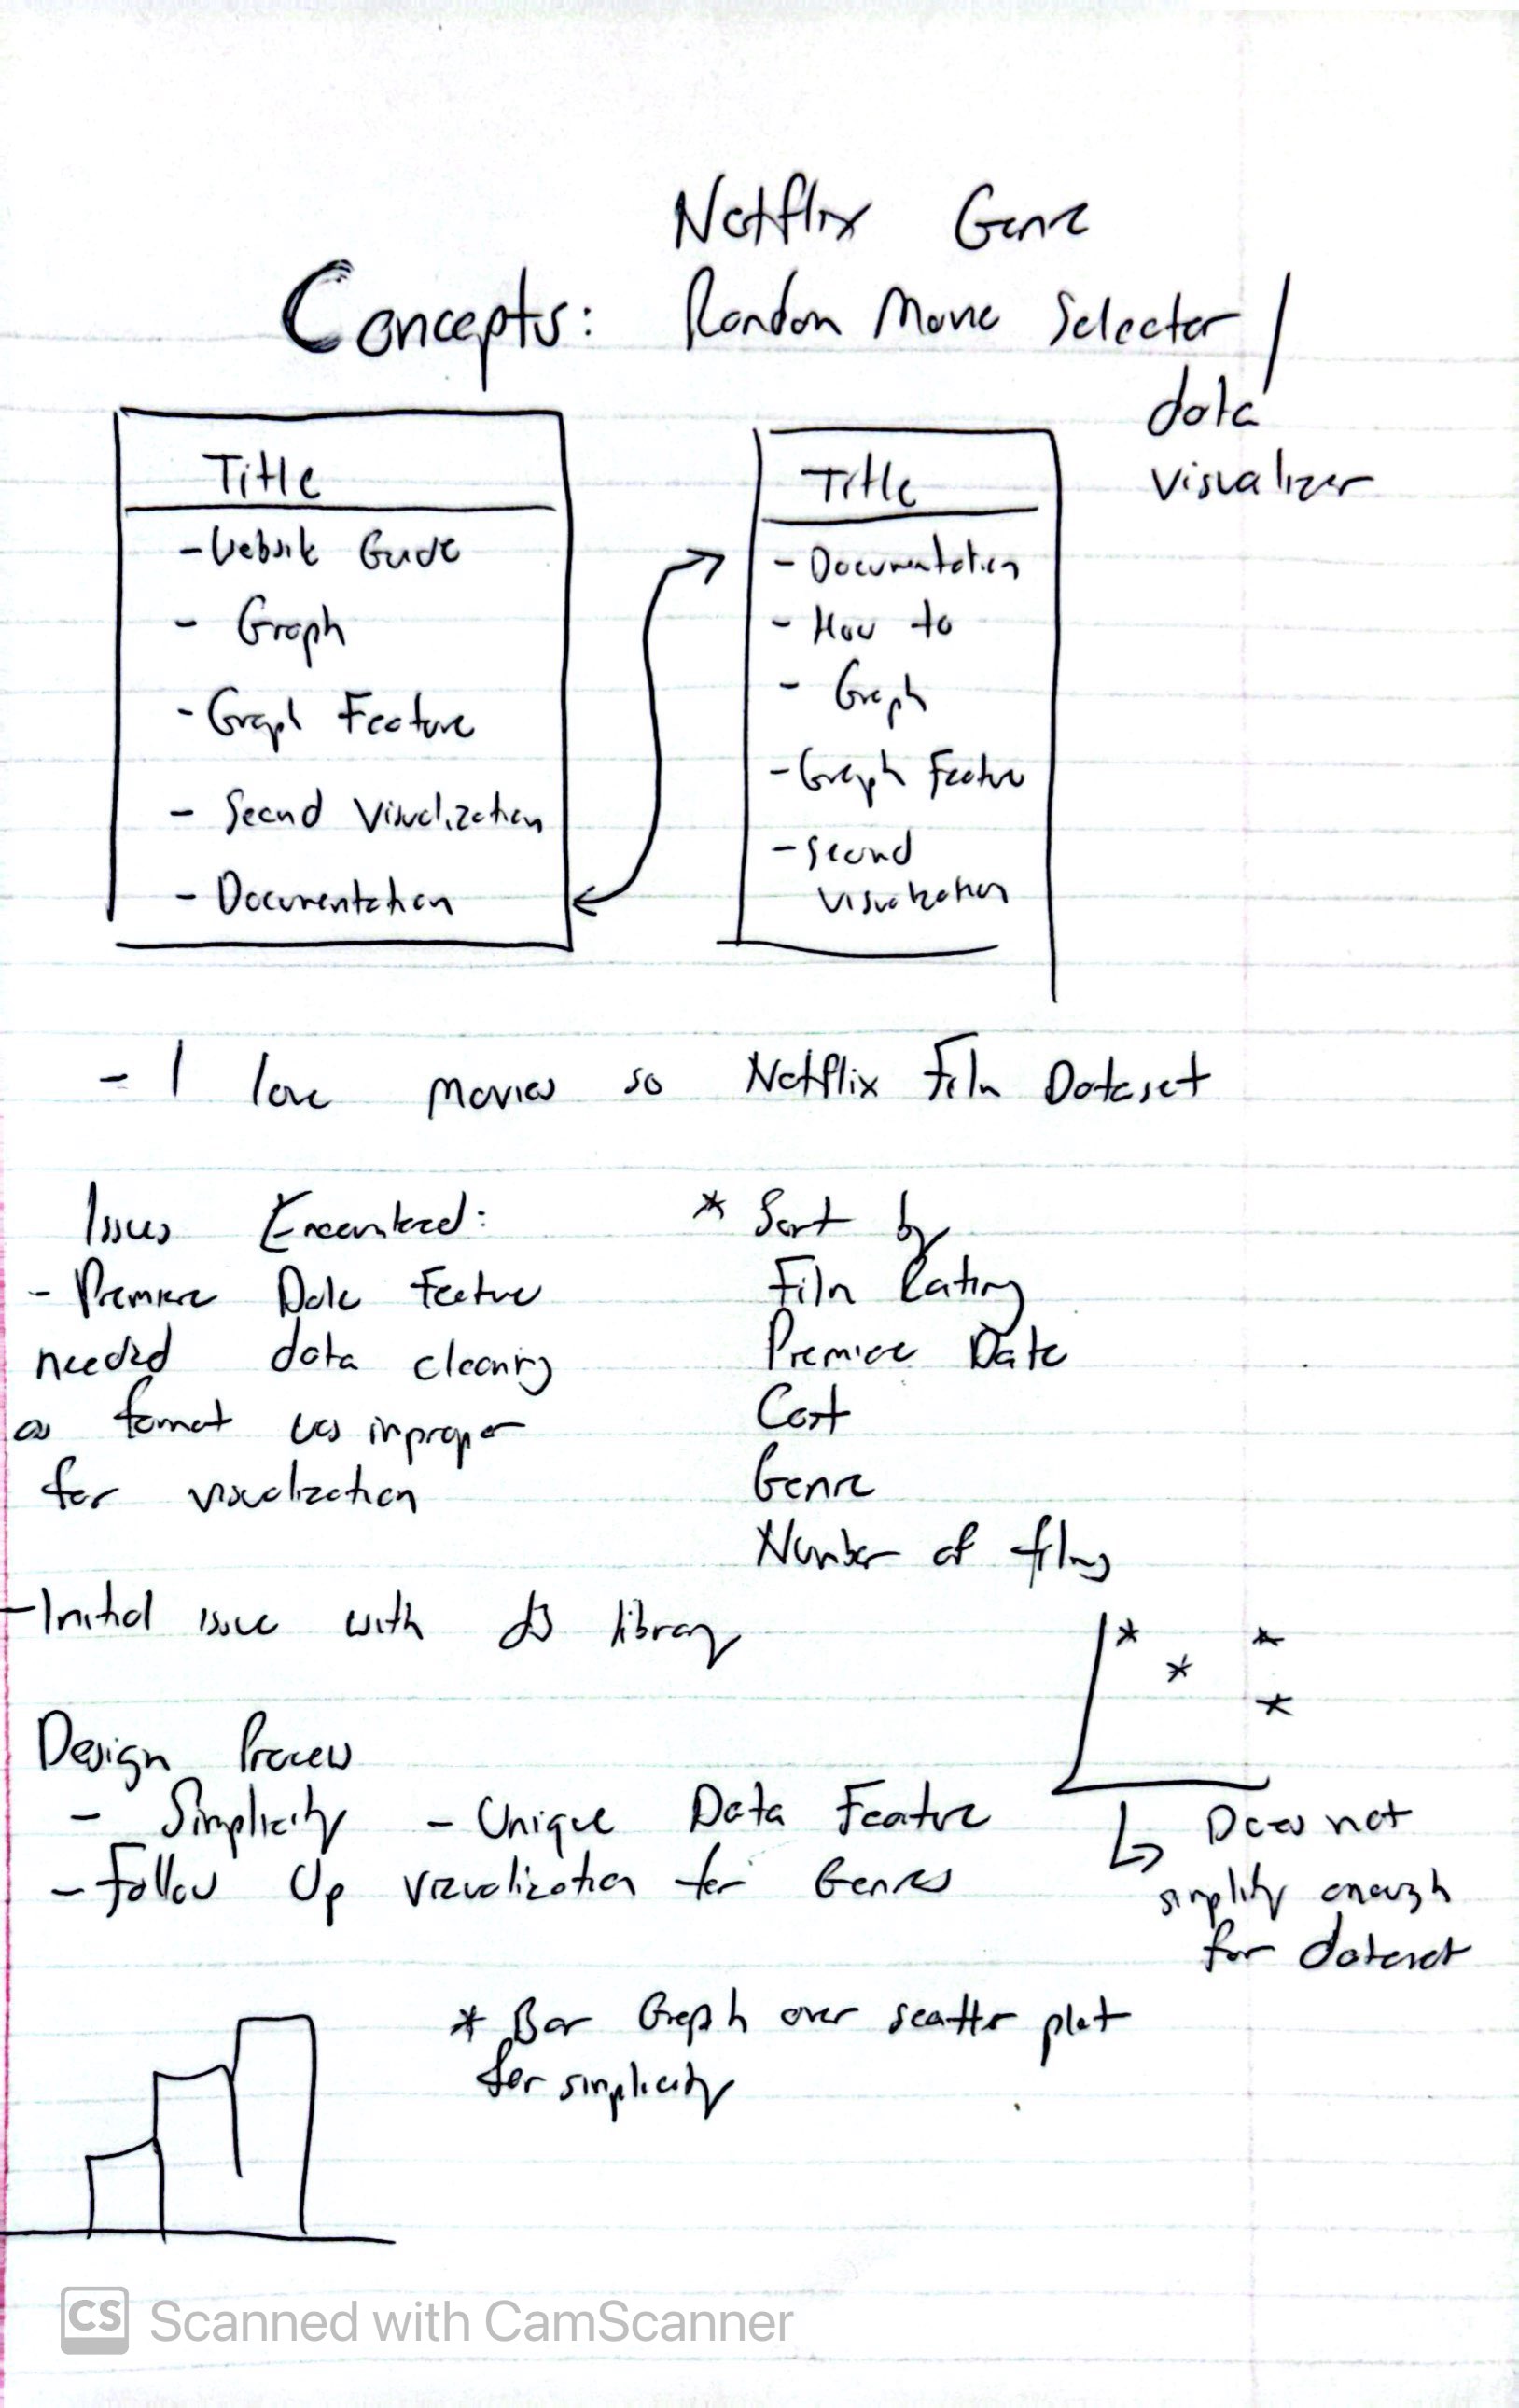 Netflix Genre
Concepts: Random Movie Selector /
data
visualizer
Title
- Website Guide
- Graph
- Graph Feature
- Second Visualization
- Documentation
Title
- Documentation
- How to
- Graph
- Graph Feature
- Second
visualization
- I love movies so Netflix Film Dataset
Issues Encountered:
- Premiere Date Feature
needed data cleaning
as format was inproper
for visualization
- Initial issue with d3 library
* Sort by
Film Rating
Premiere Date
Cost
Genre
Number of films
Design Process
- Simplicity - Unique Data Feature
- Follow Up vizualization for Genres
Does not
simplify enough
for dataset
* Bar Graph over scatter plot
for simplicity
CS Scanned with CamScanner